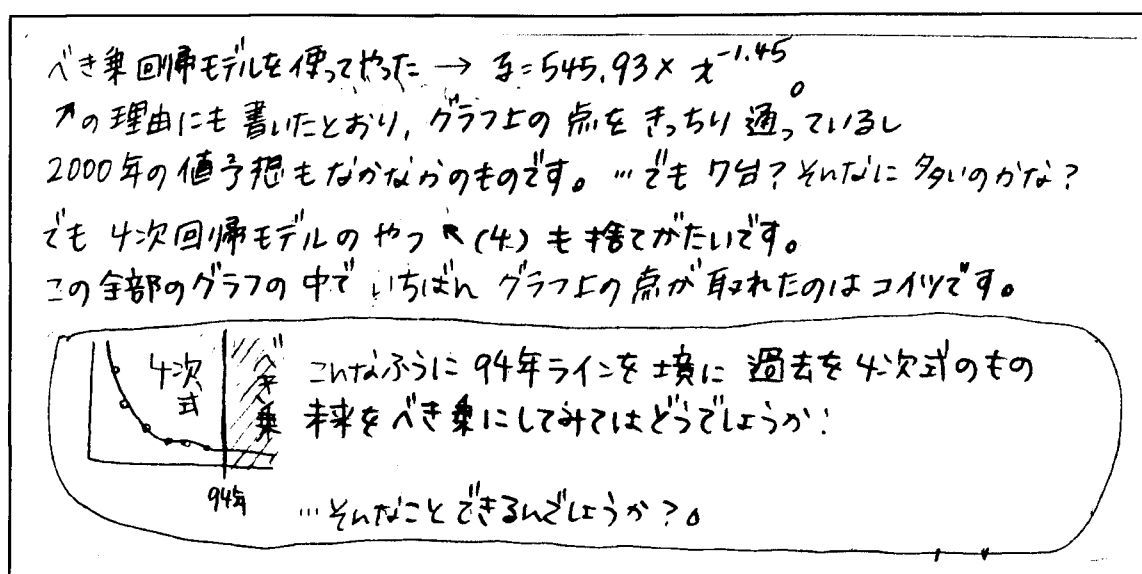 べき乗回帰モデルを使ってやった → y=545.93×x^-1.45
↗の理由にも書いたとおり,グラフ上の点をきっちり通っているし
2000年の値予想もなかなかのものです。…でも7台?そんなに多いのかな?
でも4次回帰モデルのやつ↖(4)も捨てがたいです。
この全部のグラフの中でいちばんグラフ上の点が取れたのはコイツです。
4次式
べき乗
94年
こんなふうに94年ラインを境に過去を4次式のもの
未来をべき乗にしてみてはどうでしょうか!
…そんなことできるんでしょうか?。